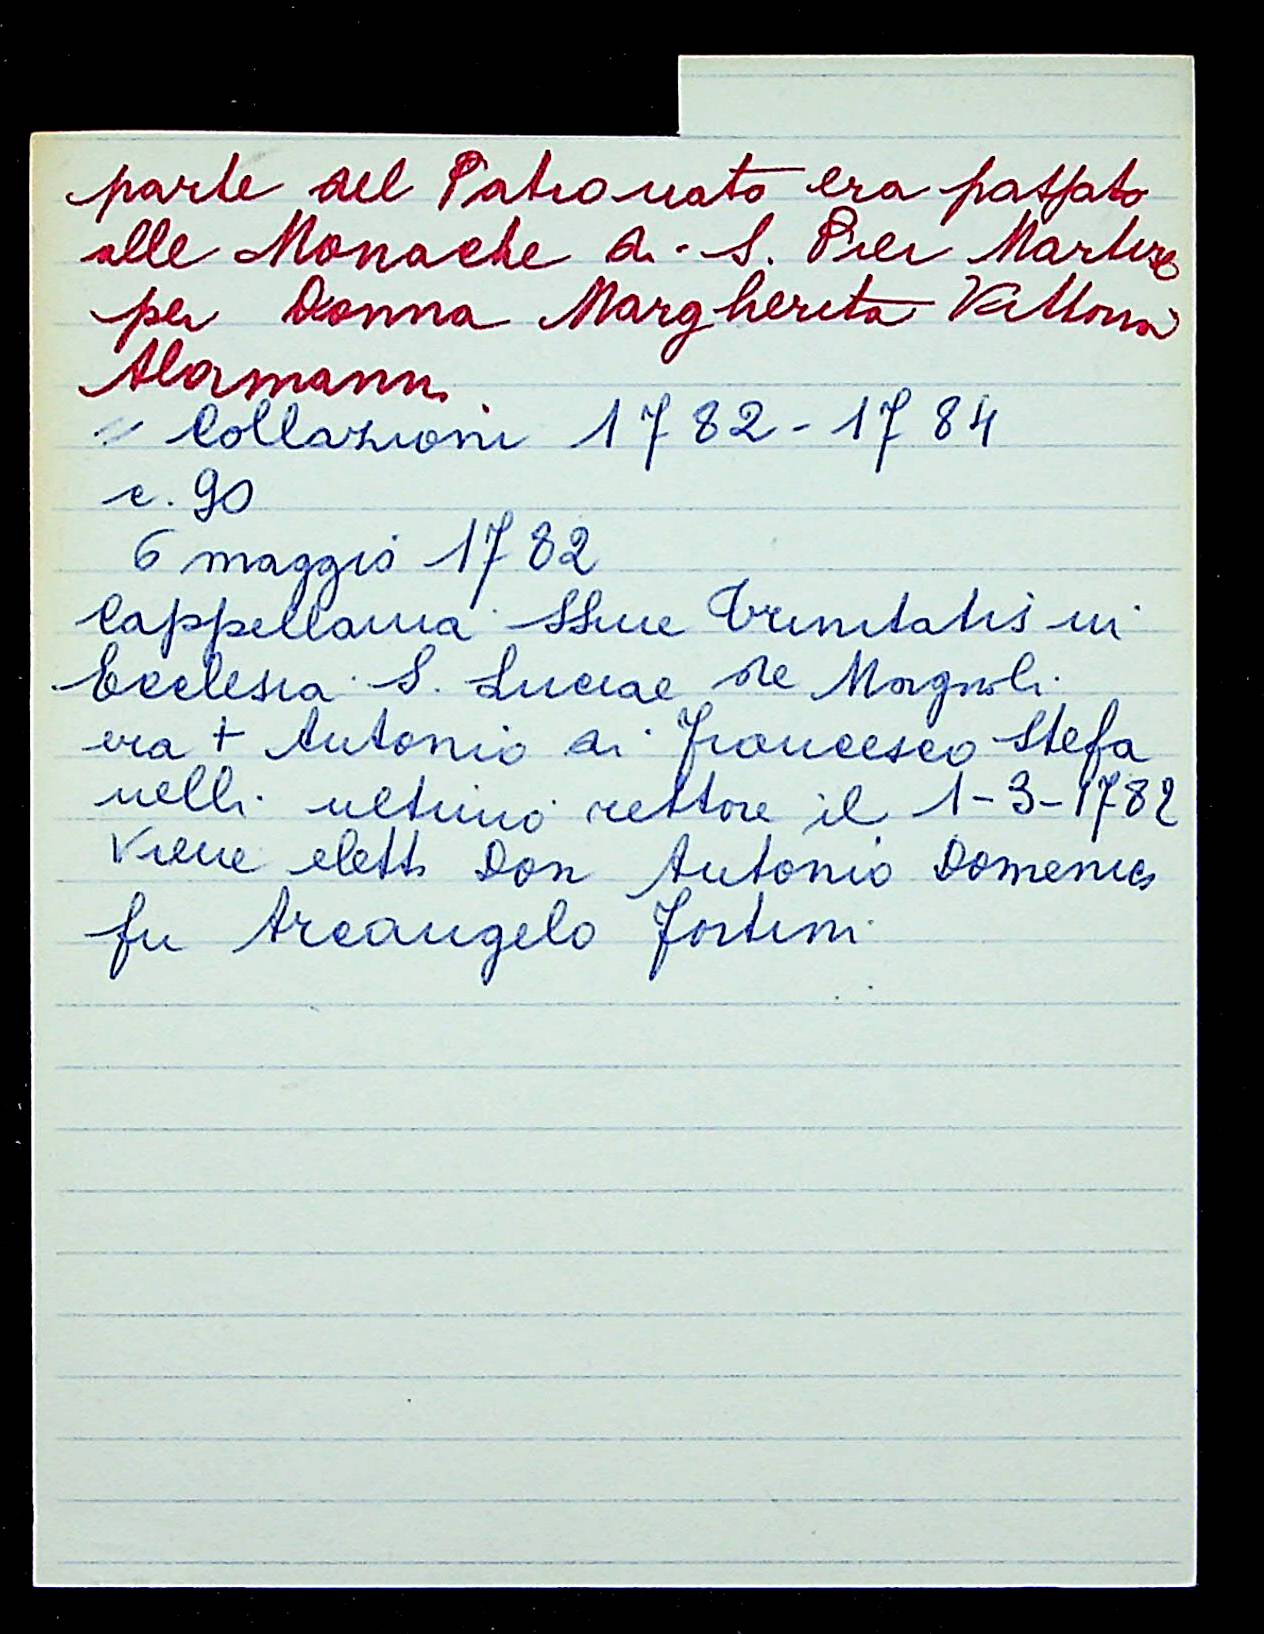 parte del Patronato era passato
alle Monache di S. Pier Martire
per Donna Margherita Vittoria
Alamanni
= Collazioni 1782-1784
c. 90
6 maggio 1782
Cappellania SSme Trinitatis in
Ecclesia S. Luciae de Magnoli
era + Antonio di Francesco Stefa
nelli ultimo rettore il 1-3-1782
Viene eletto Don Antonio Domenico
fu Arcangelo Fortini